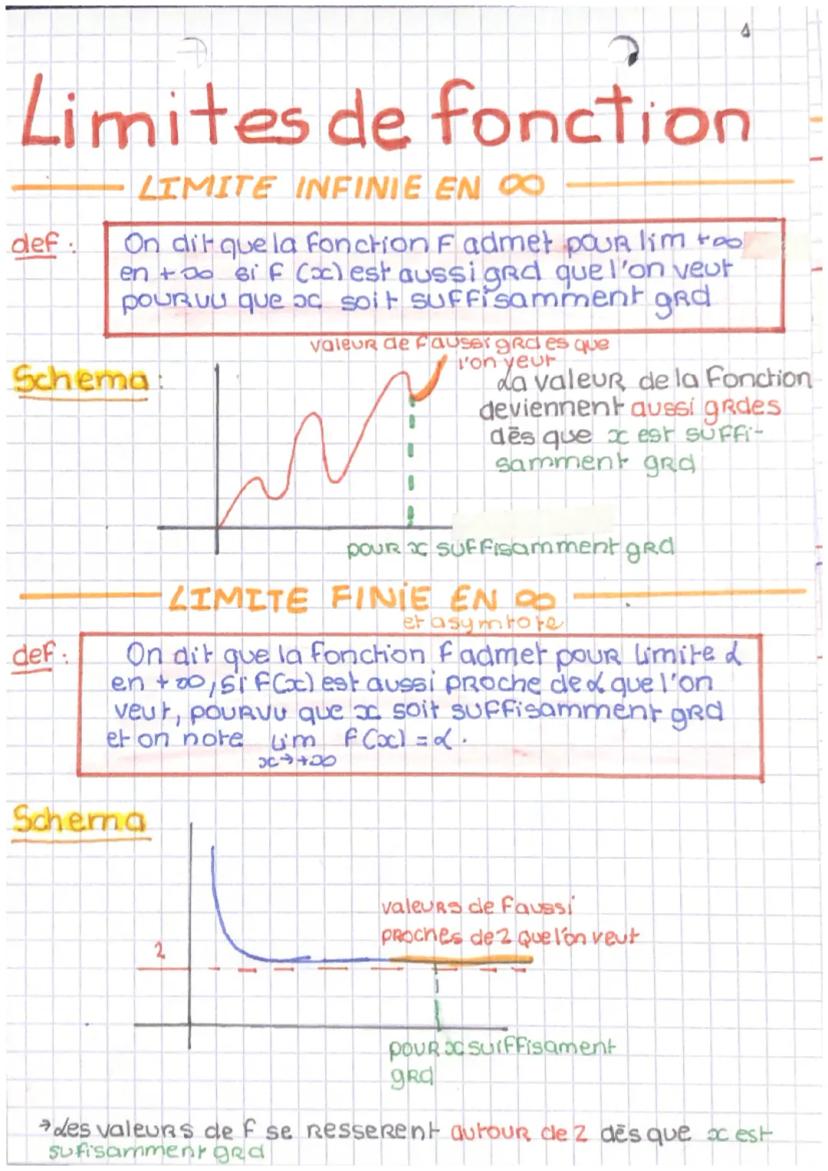 1
Limites de fonction
LIMITE INFINIE EN ∞
def :
On dit que la fonction F admet pour lim +∞
en +∞ si f (x) est aussi grd que l'on veut
pourvu que x soit suffisamment grd
Schema :
valeur de f aussi grdes que
l'on veut
La valeur de la Fonction
deviennent aussi grdes
dès que x est suffi-
samment grd
pour x suffisamment grd
LIMITE FINIE EN ∞
et asymtote
def :
On dit que la fonction f admet pour limite α
en +∞, si f(x) est aussi proche de α que l'on
veut, pourvu que x soit suffisamment grd
et on note lim f(x) = α.
x→+∞
Schema
valeurs de f aussi
proches de 2 que l'on veut
2
pour x suiffisament
grd
→ Les valeurs de f se resserent autour de 2 dès que x est
sufisamment grd